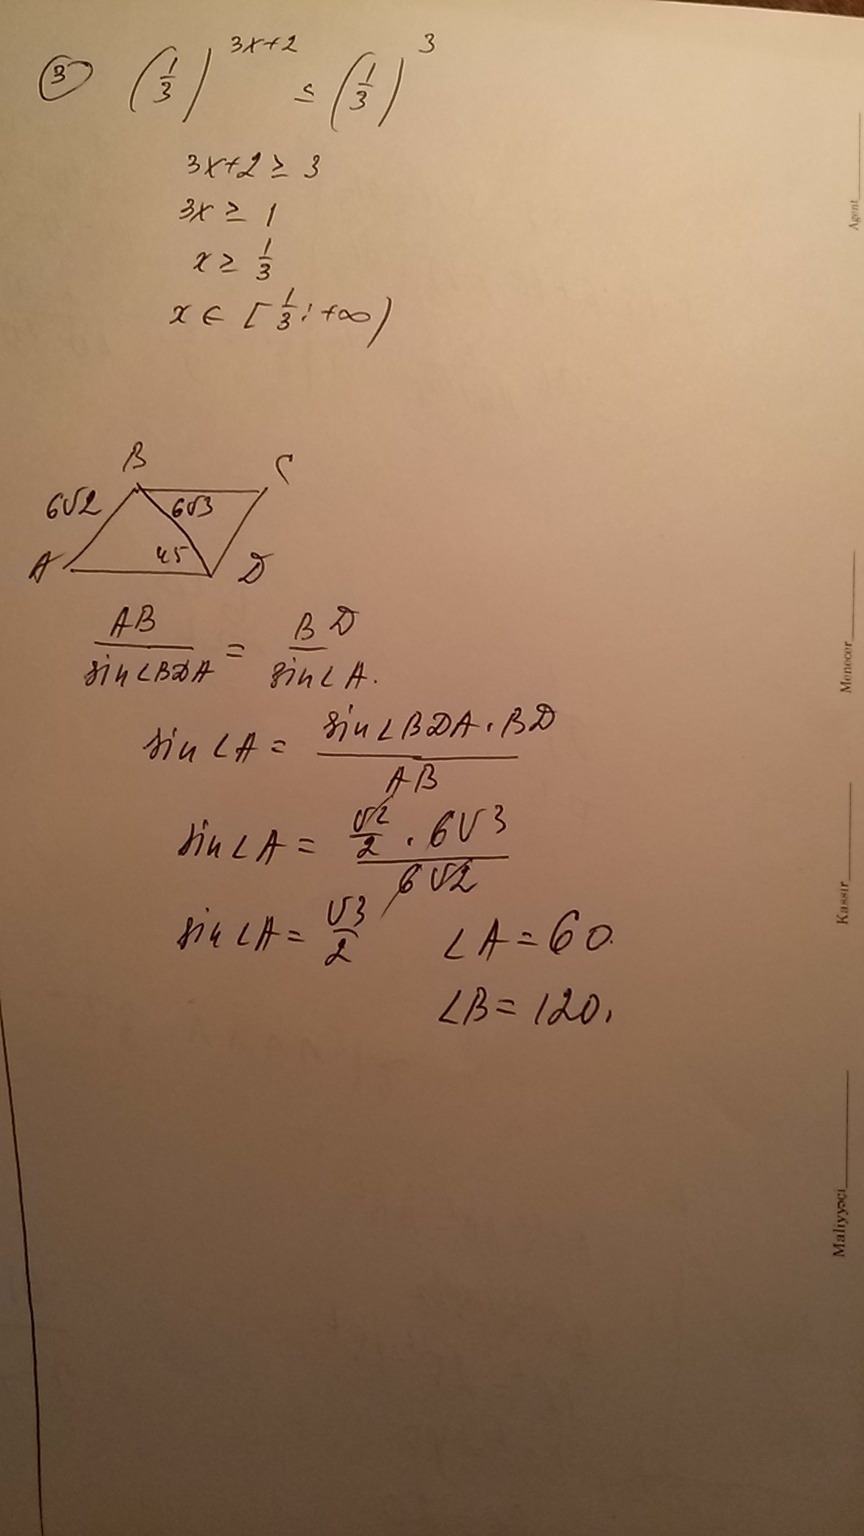 ③ (1/3)^(3x+2) ≤ (1/3)^3
3x+2 ≥ 3
3x ≥ 1
x ≥ 1/3
x ∈ [1/3; +∞)
B C
6√2 6√3
A 45 D
AB/sin∠BDA = BD/sin∠A.
sin∠A = sin∠BDA · BD / AB
sin∠A = √2/2 · 6√3 / 6√2
sin∠A = √3/2 ∠A = 60.
∠B = 120.
Agent
Menecer
Kassir
Maliyyəçi